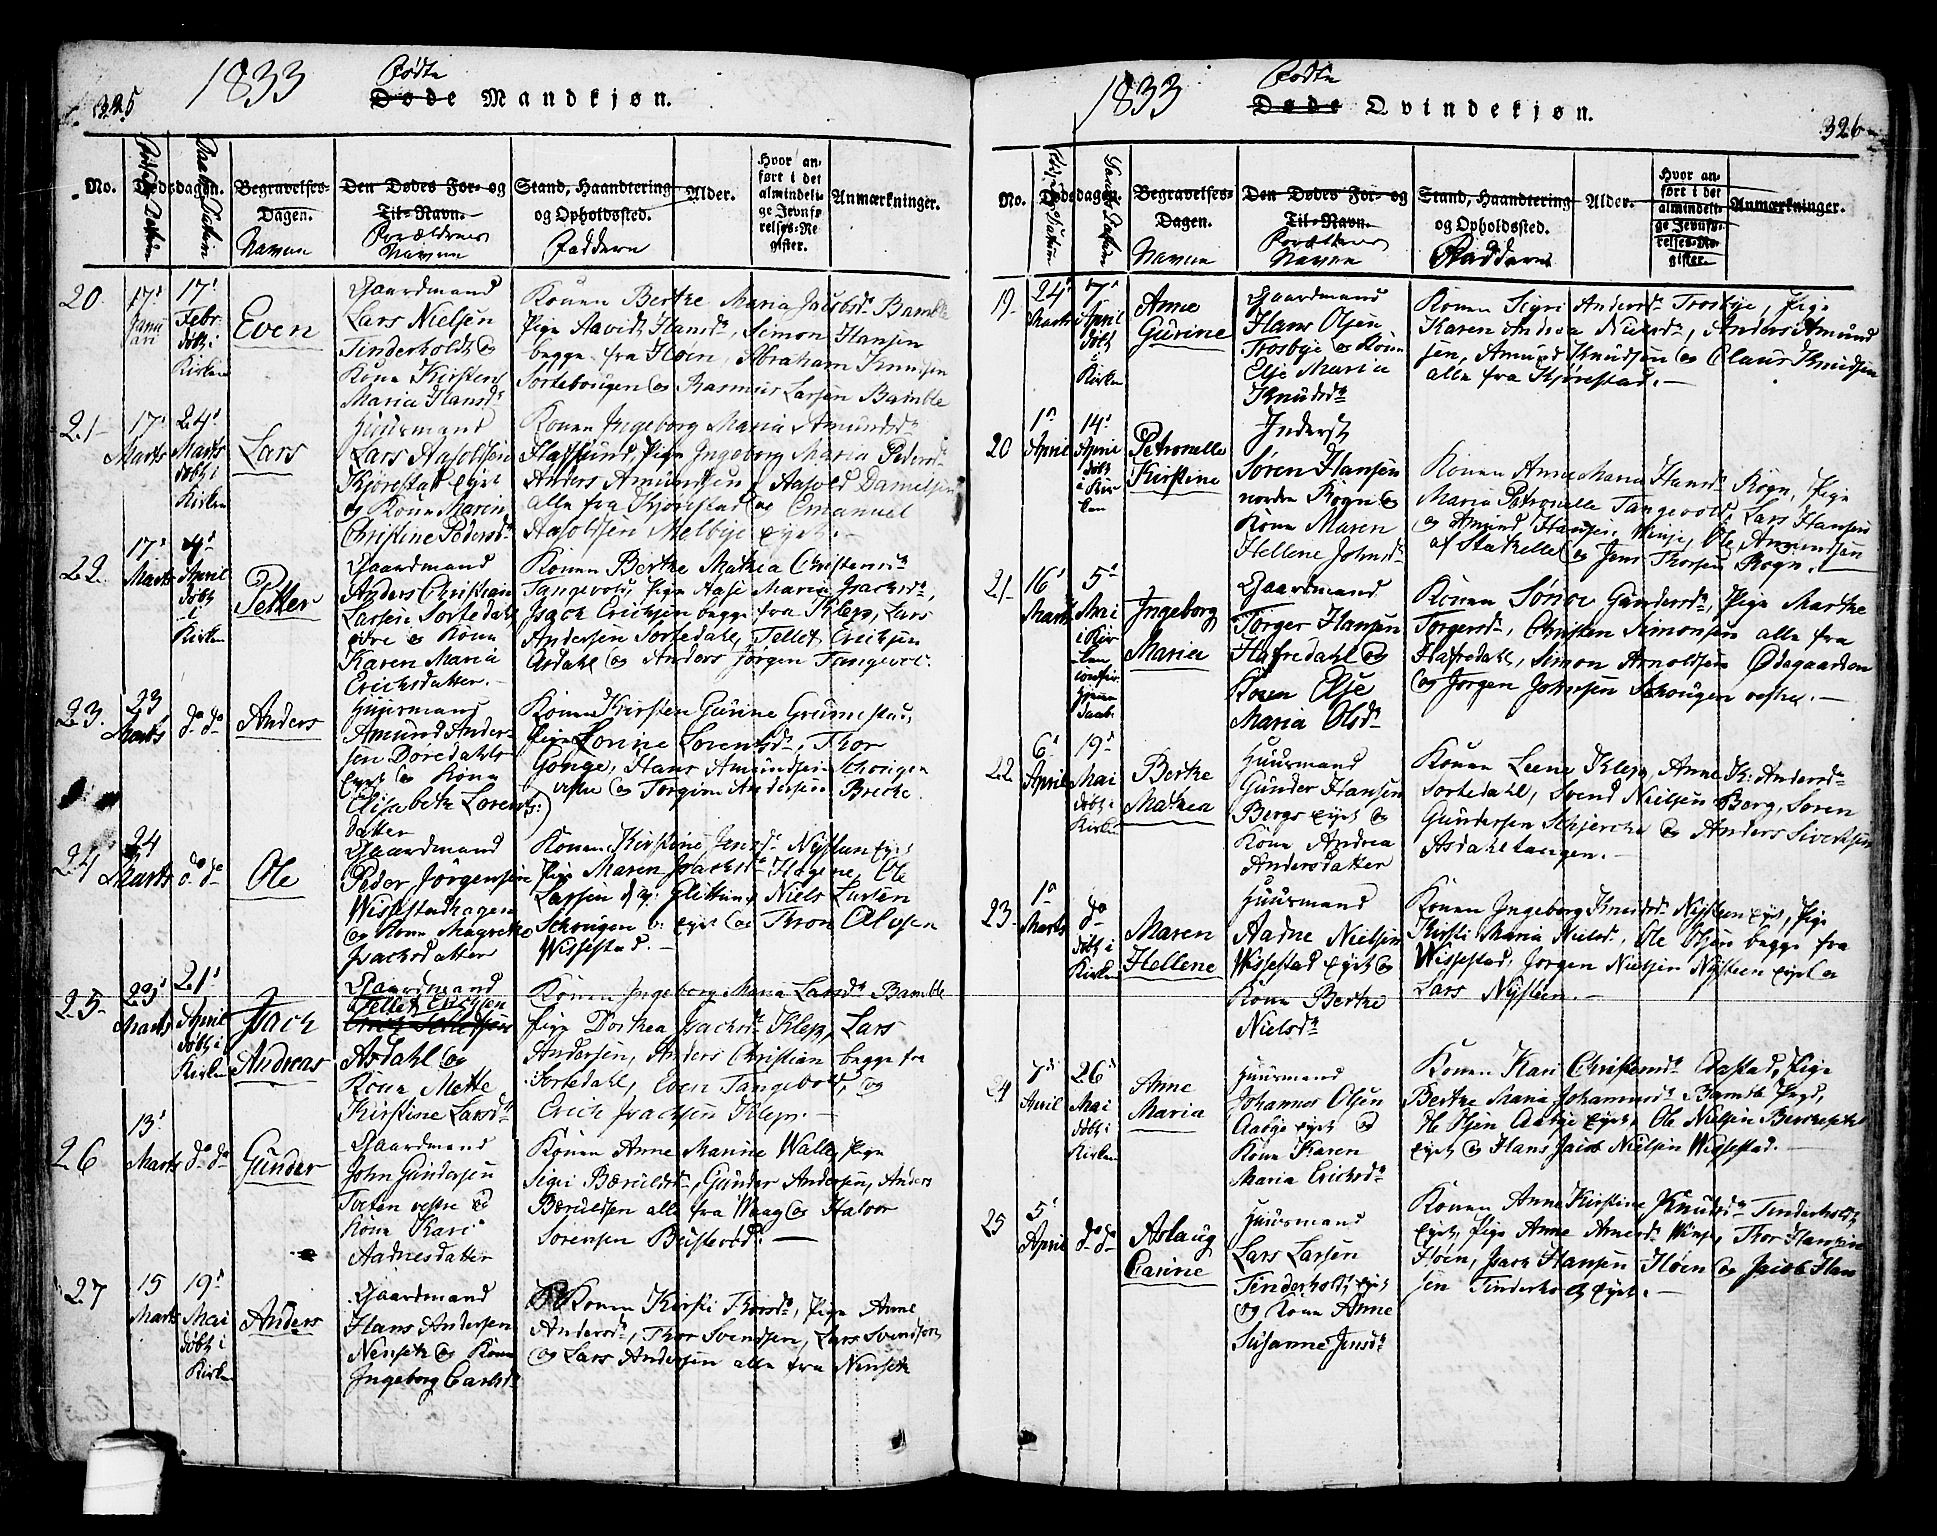 325
1833
Fødte
Døde Mandkjøn.
No.
Dødsdagen.
Fødsels Datum
Daabs Datum
Begravelses-
Dagen.
Navnen
Den Dødes For- og
Til-Navn.
Forældrenes
Navnen
Stand, Haandtering
og Opholdssted.
Faddere
Alder.
Hvor an-
ført i det
almindeli-
ge Jevnfø-
relses-Re
gister.
Anmærkninger.
20.
17d
Janu
ari
17d
Febr.
døbt i
Kirken
Even
Gaardmand
Lars Nielsen
Tinderholdt og
Kone Kirsten
Maria Hansdr
Konen Berthe Maria Jacobsdr Bamble
Pige Aavid Hansdr, Simon Hansen
begge fra Høen, Abraham Knudsen
Sortebougen og Rasmus Larsen Bamble
21-
17d
Marts
24d
Marts
døbt i
Kirken
Lars
Huusmand
Lars Aasoldsen
Kjørestad eyet
og Kone Maren
Christine Pedersdr
Konen Ingeborg Maria Amundsdr
Hafsund, Pige Ingeborg Maria Pedersdr
Anders Amundsen, Aasold Danielsen
alle fra Kjørestad og Emanuel
Aasoldsen Melbye eyet.-
22.
17d
Marts
4d
April
døbt
i
Kirken
Petter
Gaardmand
Anders Christian
Larsen Sortedahl
øvre og Kone
Karen Maria
Ericksdatter.-
Konen Berthe Mathea Christensdr
Tangevold, Pige Aase Maria Isachsdr,
Isach Ericksen begge fra Klep, Lars
Andersen Sortedahl, Tellef Ericksen
Asdahl og Anders Jørgen Tangevol.
23.
23
Marts
do do
Anders
Huusmand
Amund Ander-
sen Døredahls
Eyet og Kone
Elisabeth Lorents:
datter
Konen Kirsten Gurine Grumestad,
Pige Lorine Lorentsdr, Thor
Gonge, Hans Amundsen Schougen
vestre og Torgim Andersen Brecke.
24
24
Marts
do do
Ole
Gaardmand
Peder Jørgensen
Wissestadhagen
og Kone Magrethe
Isachsdatter
Konen Kirstine Jensdr Nysteen eyet
Pige Maren Isachsdr Hagene, Ole
Larsen Glittum, Niels Larsen
Schougen v: eyet og Thron Olevsen
Wissestad.-
25-
23d
Marts
21d
April
døbt i
Kirken
Isach
Andreas
Gaardmand
Tellef Ericksen
Asdahl og
Kone Mette
Kirstine Larsdr
Konen Ingeborg Maria Larsdr Bamble
Pige Dorthea Isachsdr Klep, Lars
Andersen, Anders Christian begge fra
Sortedahl, Even Tangevold, og
Erich Isachsen Klep.-
26
13d
Marts
do do
Gunder
Gaardmand
John Gundersen
Toeten vestre og
Kone Kari
Aadnesdatter
Konen Anne Marine Walle, Pige
Sigri Bærulsdr, Gunder Andersen, Anders
Bærulsen alle fra Waag og Halvor
Sørensen Bustevod.-
27
15
Marts
19d
Mai
døbt i
Kirken
Anders
Gaardmand
Hans Andersen
Nenseth og Kone
Ingeborg Carlsdr
Konen Kirsti Thorsdr, Pige Anne
Andersdr, Thor Svendsen, Lars Svendsen
og Lars Andersen alle fra Nenseth
1833
Fødte
Døde Qvindekjøn.
326
No.
Dødsdagen.
Daabs Datum
Begravelses-
Dagen.
Navnen
Den Dødes For- og
Til-Navn.
Forældrenes
Navnen
Stand, Haandtering
og Opholdssted.
Faddernes
Alder.
Hvor an-
ført i det
almindeli-
ge Jevnfø-
relses-Re-
gister.
Anmærkninger.
19-
24d
Marts
7d
April
døbt
i
Kirken
Anne
Gurine
Gaardmand
Hans Olsen
Trosbye og Kone
Else Maria
Knudsdr
Konen Sigri Andersdr Trosbye, Pige
Karen Andrea Nielsdr, Anders Amund
sen, Amund Knudsen og Claus Knudsen
alle fra Kjørestad.-
20
1d
April
14d
April
døbt
i Kir-
ken
Petronelle
Kirstine
Inderst
Søren Hansen
nordre Rogn og
Kone Maren
Hellene Johnsdr
Konen Anne Maria Hansdr Rogn, Pige
Maria Petronelle Tangevold, Lars Hansen
og Amund Hansen Winje, Ole Amundsen
af Stathelle og Jens Thorsen Rogn.-
21-
16d
Marts
5d
Mai
i Kir-
ken
Daab.
Ingeborg
Maria
Gaardmand
Torger Hansen
Hafredahl og
Konen Else
Maria Olsdr
Konen Sønov Gundersdr, Pige Marthe
Torgersdr, Christen Simonsen alle fra
Hafredahl, Simon Arnoldsen Ødegaarden
og Jørgen Johnsen Schougen vestre.-
22
6d
April
19d
Mai
døbt i
Kirken
Berthe
Mathea
Huusmand
Gunder Hansen
Bergs eyet og
Kone Andrea
Andersdatter
Konen Leene Klep, Anne K: Andersdr
Sortedahl, Svend Nielsen Berg, Søren
Gundersen Schjercke og Anders Sivertsen
Asdahltangen.-
23-
1d
Marts
do
døbt i
Kirken
Maren
Hellene
Huusmand
Aadne Nielsen
Wissestad eyet og
Kone Berthe
Nielsdr
Konen Ingeborg Knudsdr Nysteen eyet, Pige
Kirsti Maria Nielsd., Ole Olsen begge fra
Wissestad, Jørgen Nielsen Nysteen eyet og
Lars Nysteen.-
24
7d
April
26d
Mai
døbt i
Kirken
Anne
Maria
Huusmand
Johannes Olsen
Aabye eyet og
Kone Karen
Maria Ericksdr
Konen Kari Christensdr Rastad, Pige
Berthe Maria Johannesdr Bamble Prgd,
Ole Olsen Aabye eyet, Ole Nielsen
eyet og Hans Jacob Nielsen Wissestad.-
25
5d
April
do do
Aslaug
Carine
Huusmand
Lars Larsen
Tinderholdt eyet
og Kone Anne
Susanne Jensdr
Konen Anne Kirstine Knudsdr Tinderholdt
eyet, Pige Anne Arnesdr Winje, Thor Hansen
Høen, Isach Hansen Høen og Jacob Han
sen Tinderholdt eyet.-